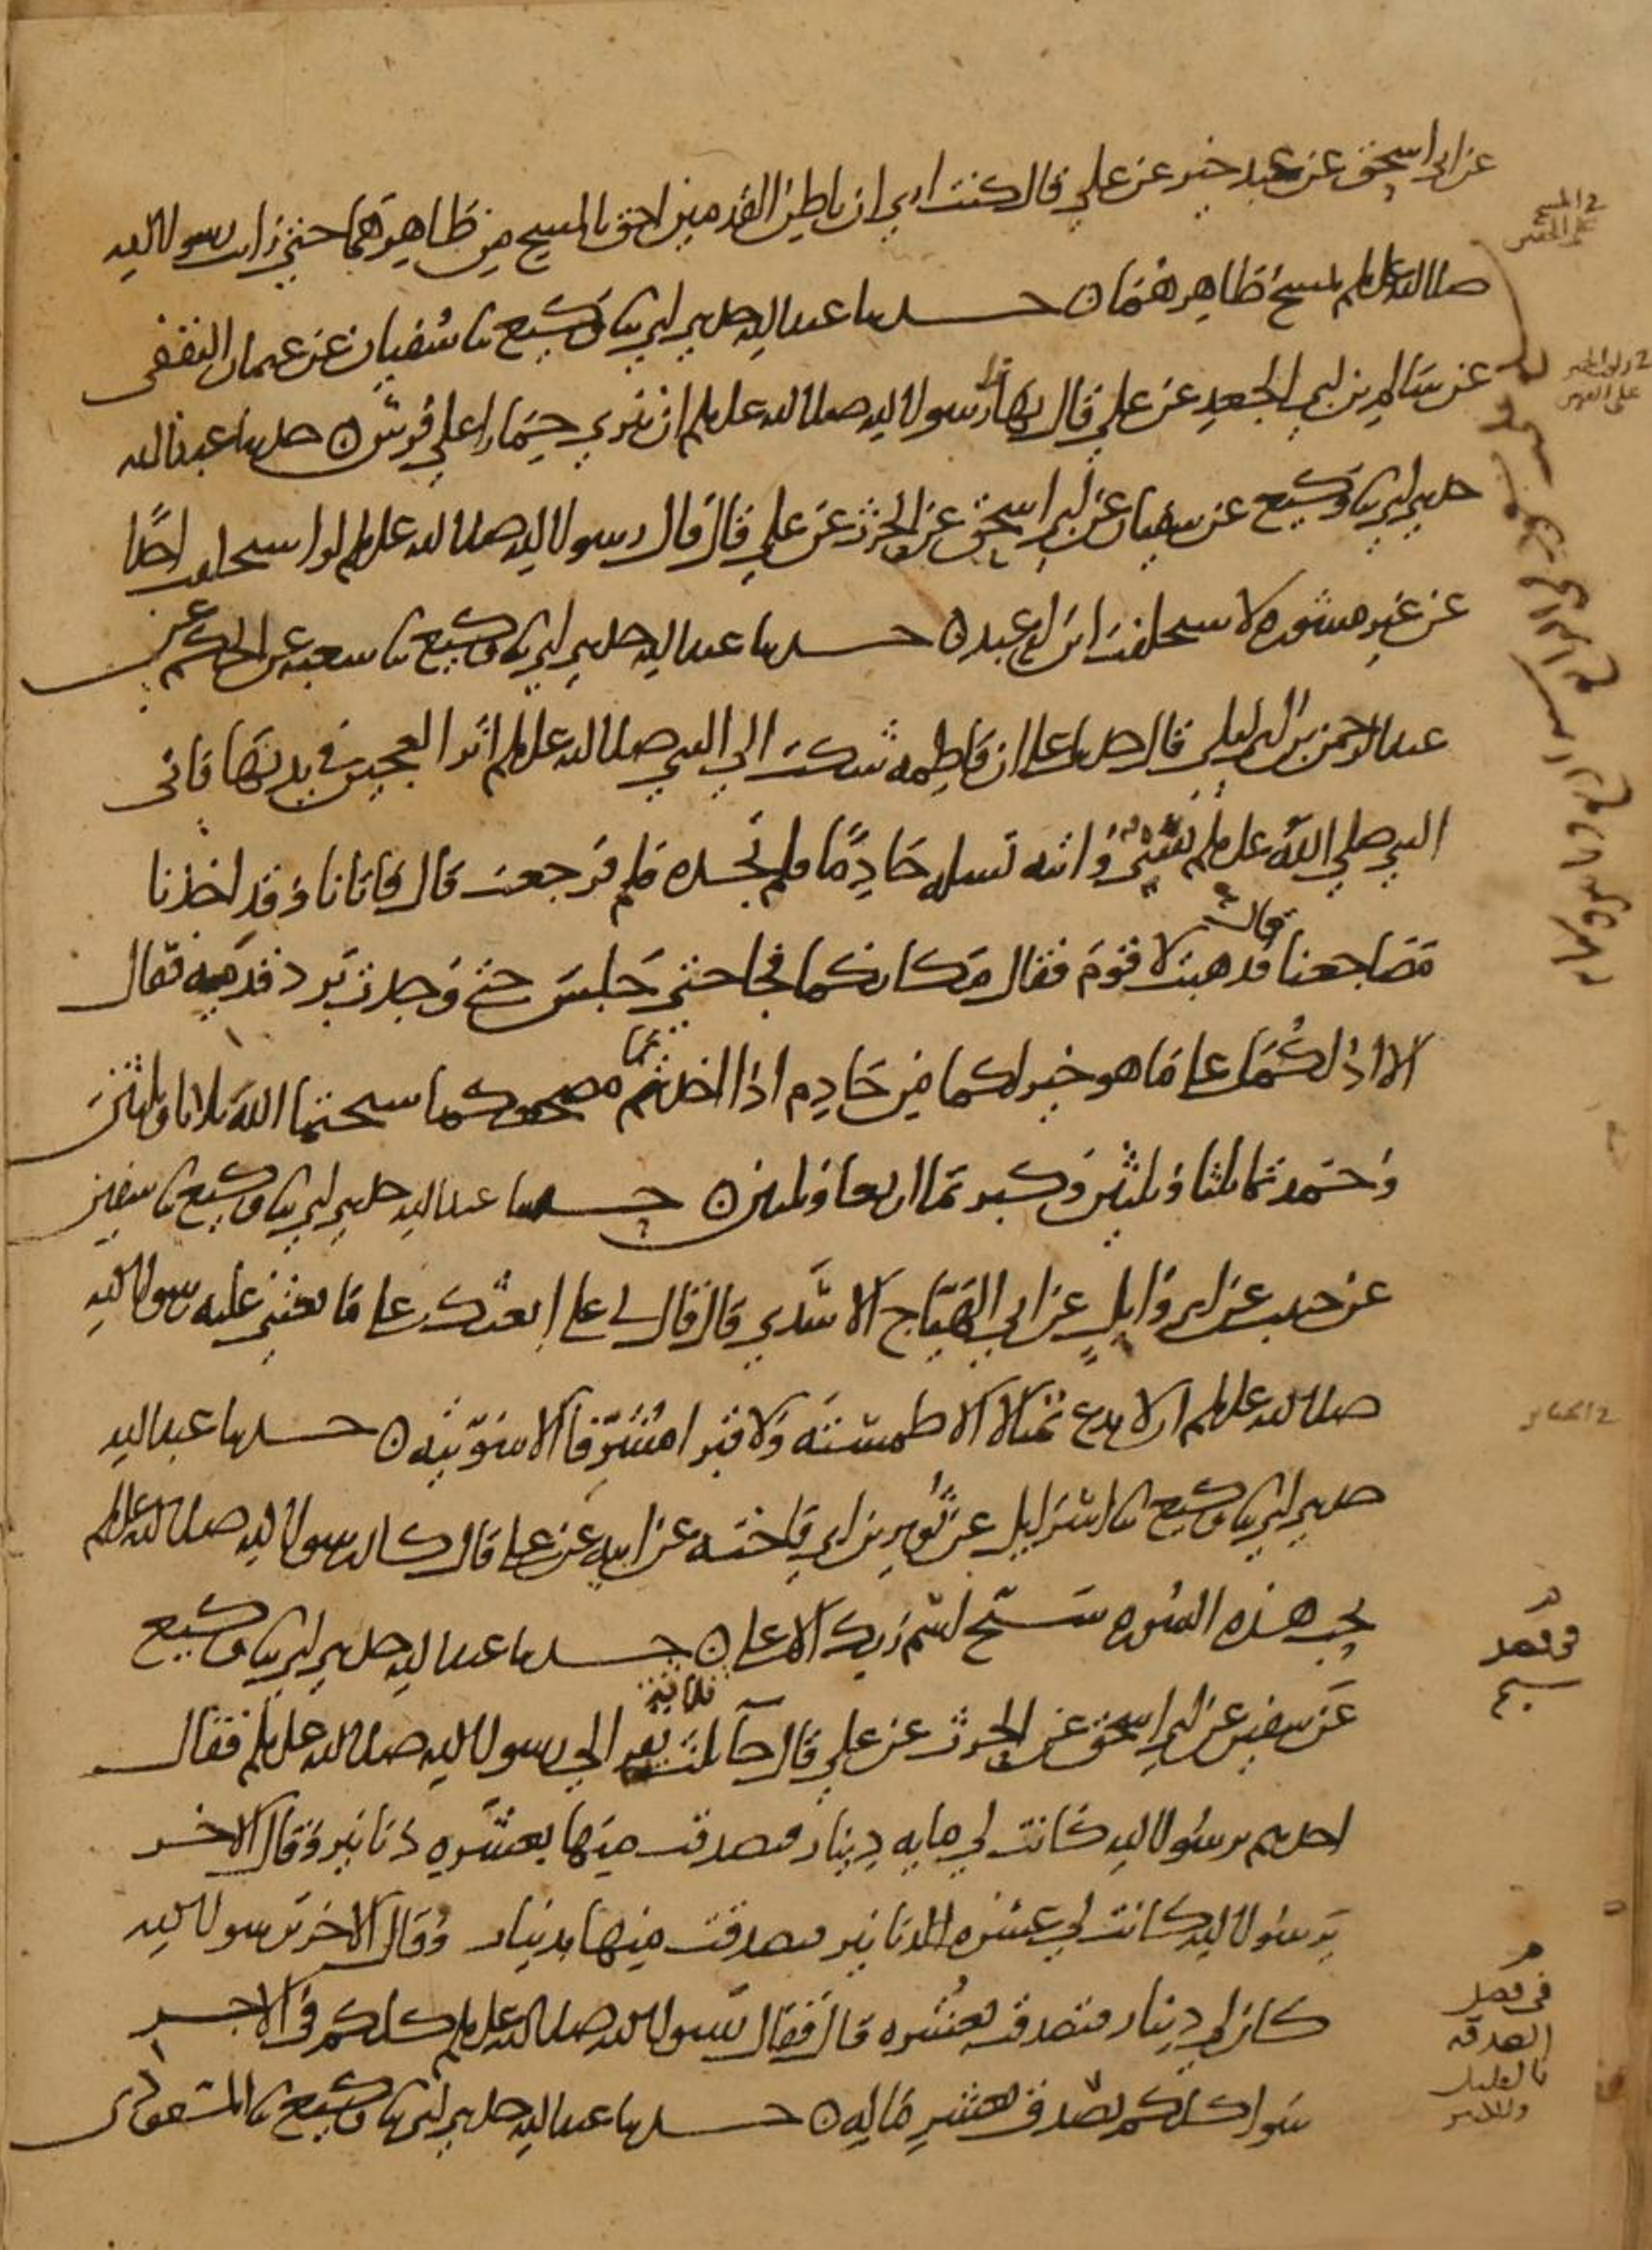 عن ابي اسحق عن عبد خير عن علي قال كنت اري ان باطن القدمين احق بالمسح من ظاهرهما حتي رايت رسول الله
صلى الله عليه وسلم يمسح ظاهرهما ه حدثنا عبد الله حدثني ابي ثنا وكيع ثنا سفيان عن عثمان الثقفي
عن سالم بن ابي الجعد عن علي قال نهانا رسول الله صلى الله عليه وسلم ان ننزي حمارا على فرس ه حدثنا عبد الله
حدثني ابي ثنا وكيع عن سفيان عن ابي اسحق عن الحرث عن علي قال قال رسول الله صلى الله عليه وسلم لو استخلفت احدًا
عن غير مشوره لاستخلفت ابن ام عبد ه حدثنا عبد الله حدثني ابي ثنا وكيع ثنا شعبه عن الحكم عن
عبد الرحمن بن ابي ليلي قال حدثنا علي ان فاطمه شكت الي النبي صلى الله عليه وسلم اثر العجين في يديها فاتى
النبي صلي الله عليه وسلم سبي فاتته تسله خادمًا فلم تجده فلم فرجعت قال فاتانا وقد اخذنا
مضاجعنا قال فذهبت لاقوم فقال مكانكما فجا حتي جلس حتي وجدت برد قدميه فقال
الا ادلكما على ما هو خير لكما من خادم اذا اخذتما مضجعكما سبحتما الله ثلاثا وثلثين
وحمدتما ثلثا وثلثين وكبرتما اربعا وثلثين ه حدثنا عبد الله حدثني ابي ثنا وكيع ثنا سفين
عن حبيب عن ابي وايل عن ابي الهياج الاسدي قال قال لي علي ابعثك على ما بعثني عليه رسول الله
صلى الله عليه وسلم ان لا تدع تمثالا الا طمسته ولا قبرا مشرفا الا سويته ه حدثنا عبد الله
حدثني ابي ثنا وكيع ثنا اسرايل عن ثوير بن ابي فاخته عن ابيه عن علي قال كان رسول الله صلى الله عليه وسلم
يحب هذه السوره سبح اسم ربك الاعلى ه حدثنا عبد الله حدثني ابي ثنا وكيع
عن سفين عن ابي اسحق عن الحرث عن علي قال جآ ثلثه نفر الي رسول الله صلى الله عليه وسلم فقال
احدهم يرسول الله كانت لي مايه دينار فتصدقت منها بعشره دنانير وقال الاخر
يرسول الله كانت لي عشره الدنانير فتصدقت منها بدينار وقال الاخر يرسول الله
كان لي دينار فتصدقت بعشره قال فقال رسول الله صلى الله عليه وسلم كلكم في الاجر
سوا كلكم تصدق بعشر ماله ه حدثنا عبد الله حدثني ابي ثنا وكيع ثنا المسعودي
في المسح
على الخفين
في فضل
سبح
في فضل
الصدقه
بالقليل